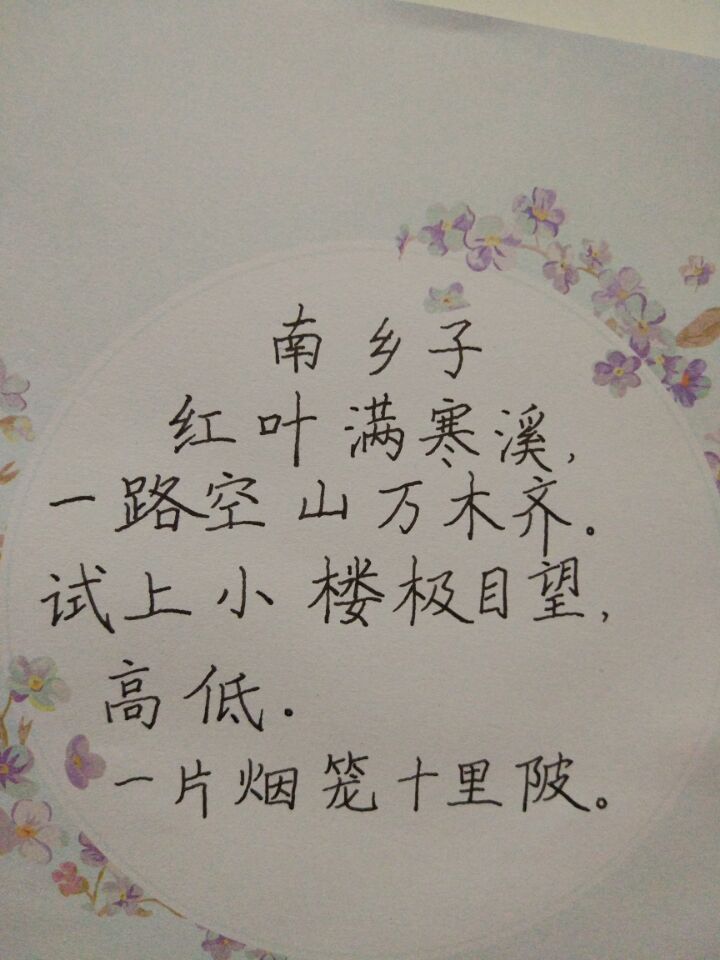 南乡子
红叶满寒溪,
一路空山万木齐。
试上小楼极目望,
高低.
一片烟笼十里陂。